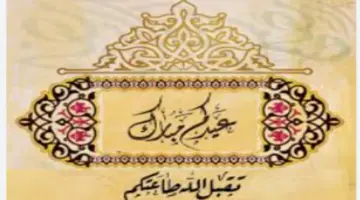 عيدكم مبارك
تقبل الله طاعتكم